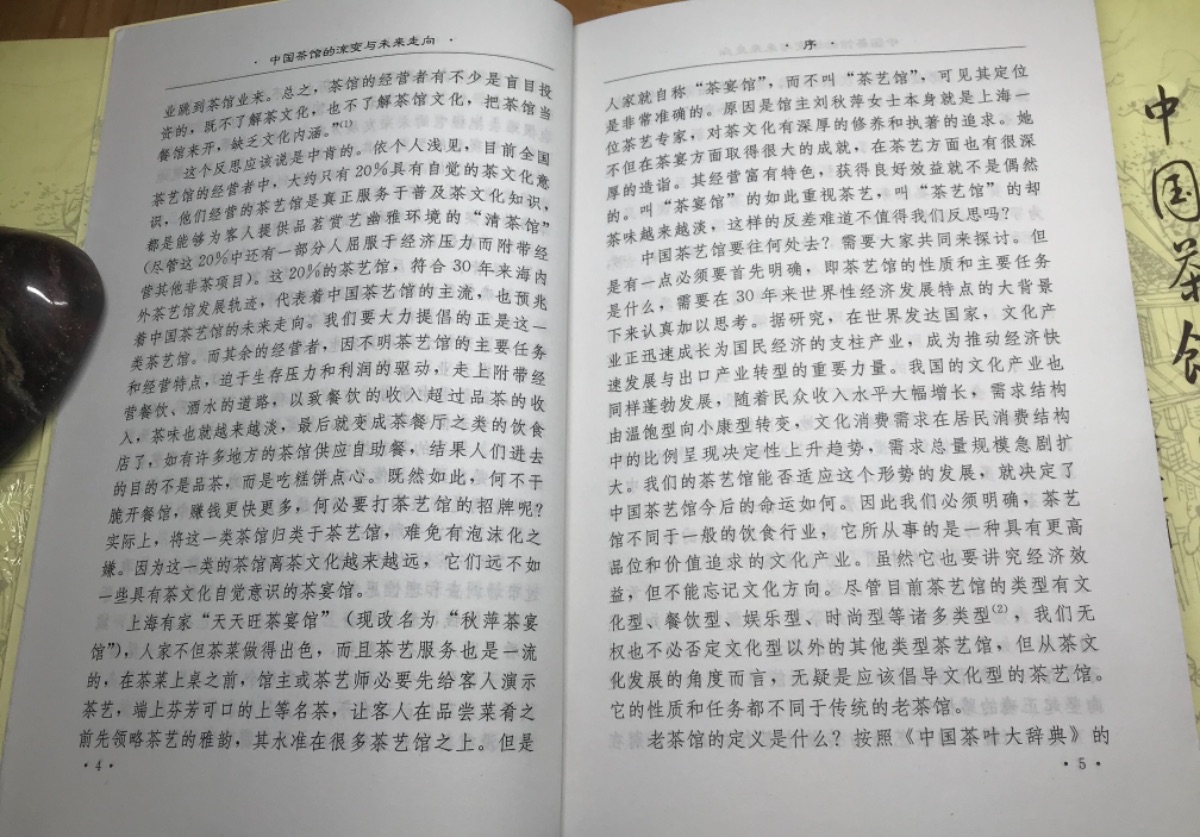 · 中国茶馆的流变与未来走向 ·
业跳到茶馆业来。总之，茶馆的经营者有不少是盲目投
资的，既不了解茶文化，也不了解茶馆文化，把茶馆当
餐馆来开，缺乏文化内涵。”(1)
这个反思应该说是中肯的。依个人浅见，目前全国
茶艺馆的经营者中，大约只有20%具有自觉的茶文化意
识，他们经营的茶艺馆是真正服务于普及茶文化知识，
都是能够为客人提供品茗赏艺幽雅环境的“清茶馆”
(尽管这20%中还有一部分人屈服于经济压力而附带经
营其他非茶项目)。这20%的茶艺馆，符合30年来海内
外茶艺馆发展轨迹，代表着中国茶艺馆的主流，也预兆
着中国茶艺馆的未来走向。我们要大力提倡的正是这一
类茶艺馆。而其余的经营者，因不明茶艺馆的主要任务
和经营特点，迫于生存压力和利润的驱动，走上附带经
营餐饮、酒水的道路，以致餐饮的收入超过品茶的收
入，茶味也就越来越淡，最后就变成茶餐厅之类的饮食
店了，如有许多地方的茶馆供应自助餐，结果人们进去
的目的不是品茶，而是吃糕饼点心。既然如此，何不干
脆开餐馆，赚钱更快更多，何必要打茶艺馆的招牌呢？
实际上，将这一类茶馆归类于茶艺馆，难免有泡沫化之
嫌。因为这一类的茶馆离茶文化越来越远，它们远不如
一些具有茶文化自觉意识的茶宴馆。
上海有家“天天旺茶宴馆”（现改名为“秋萍茶宴
馆”），人家不但茶菜做得出色，而且茶艺服务也是一流
的，在茶菜上桌之前，馆主或茶艺师必要先给客人演示
茶艺，端上芬芳可口的上等名茶，让客人在品尝菜肴之
前先领略茶艺的雅韵，其水准在很多茶艺馆之上。但是
· 4 ·
· 序 ·
人家就自称“茶宴馆”，而不叫“茶艺馆”，可见其定位
是非常准确的。原因是馆主刘秋萍女士本身就是上海一
位茶艺专家，对茶文化有深厚的修养和执著的追求。她
不但在茶宴方面取得很大的成就，在茶艺方面也有很深
厚的造诣。其经营富有特色，获得良好效益就不是偶然
的。叫“茶宴馆”的如此重视茶艺，叫“茶艺馆”的却
茶味越来越淡，这样的反差难道不值得我们反思吗？
中国茶艺馆要往何处去？需要大家共同来探讨。但
是有一点必须要首先明确，即茶艺馆的性质和主要任务
是什么，需要在30年来世界性经济发展特点的大背景
下来认真加以思考。据研究，在世界发达国家，文化产
业正迅速成长为国民经济的支柱产业，成为推动经济快
速发展与出口产业转型的重要力量。我国的文化产业也
同样蓬勃发展，随着民众收入水平大幅增长，需求结构
由温饱型向小康型转变，文化消费需求在居民消费结构
中的比例呈现决定性上升趋势，需求总量规模急剧扩
大。我们的茶艺馆能否适应这个形势的发展，就决定了
中国茶艺馆今后的命运如何。因此我们必须明确，茶艺
馆不同于一般的饮食行业，它所从事的是一种具有更高
品位和价值追求的文化产业。虽然它也要讲究经济效
益，但不能忘记文化方向。尽管目前茶艺馆的类型有文
化型、餐饮型、娱乐型、时尚型等诸多类型(2)，我们无
权也不必否定文化型以外的其他类型茶艺馆，但从茶文
化发展的角度而言，无疑是应该倡导文化型的茶艺馆。
它的性质和任务都不同于传统的老茶馆。
老茶馆的定义是什么？按照《中国茶叶大辞典》的
· 5 ·
中国茶馆